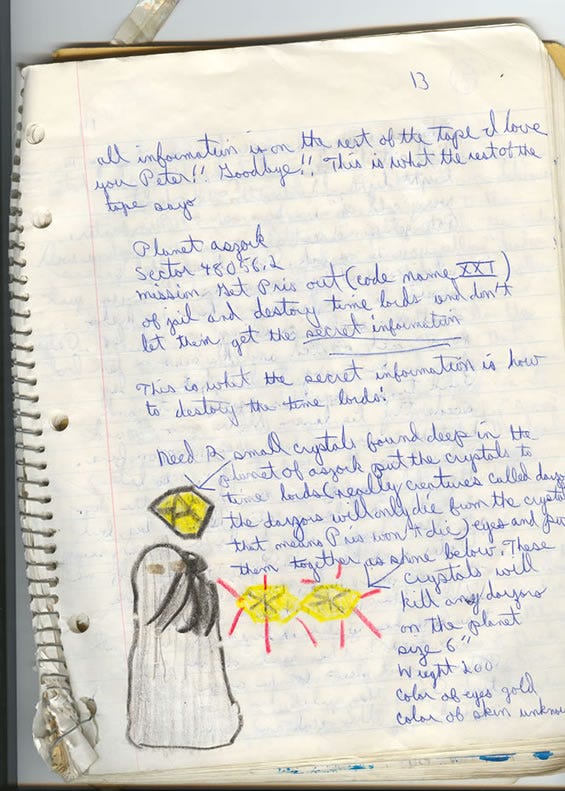 13
all information is on the rest of the tape I love
you Peter!! Goodbye!! This is what the rest of the
tape says
Planet aszork
Sector 48056.2
mission Get Pris out (code name XXI)
of jail and destory time lords and don't
let them get the secret information
This is what the secret information is how
to destory the time lords!
Need 2 small crystals found deep in the
planet of aszork put the crystals to
time lords (readly creatures called
the dayzors will only die from the
that means Pris won't die) eyes and
them together as shine below. These
crystals will
kill any dayzors
on the planet
size 6"
Wight 200
color of eyes gold
color of skin